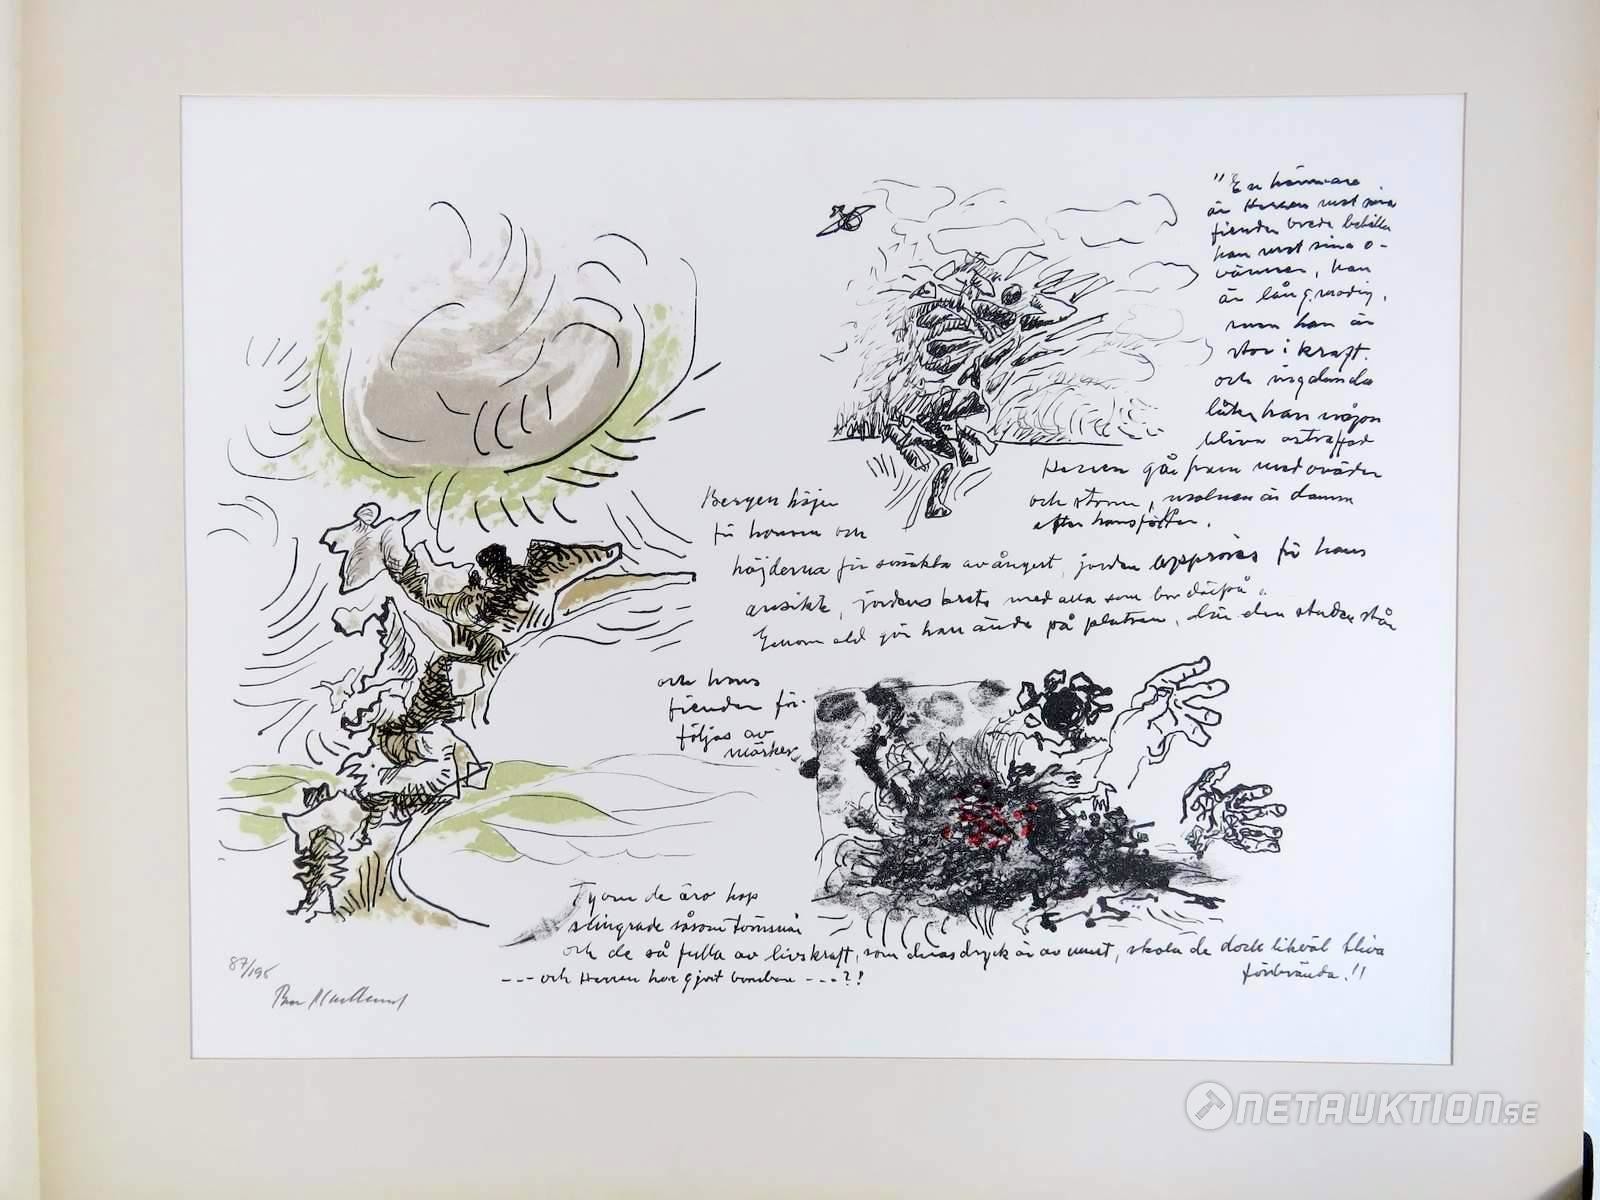 "En hämnare
är Herren mot sina
fiender vrede behålla
han mot sina o-
vänner, han
är långmodig,
men han är
stor i kraft.
och ingalunda
låter han någon
bliva ostraffad
Herren går fram med oväder
och storm, molnen är damm
efter hans fötter.
Bergen höjer
för honom och
höjderna för ansikte av ångest, jorden upprörs för hans
ansikte, jordens krets med alla som bor därpå.
Genom eld gör han ände på platsen, där den staden står
och hans
fiender för-
följas av
mörker
Ty om de äro hop
slingrade såsom törnsnår
och de så fulla av livskraft, som deras dryck är av must, skola de dock likväl bliva
förbrända!!
--- och Herren har gjort bomben ---?!
87/195
NETAUKTION.SE